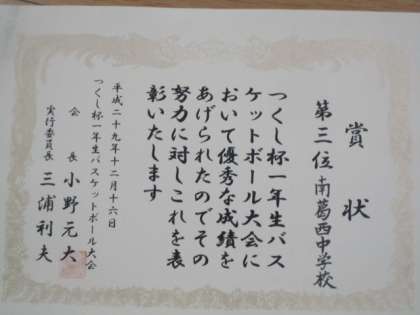 賞状
第三位 南葛西中学校
つくし杯一年生バス
ケットボール大会に
おいて優秀な成績を
あげられたのでその
努力に対しこれを表
彰いたします
平成二十九年十二月十六日
つくし杯一年生バスケットボール大会
会長 小野元大
実行委員長 三浦利夫